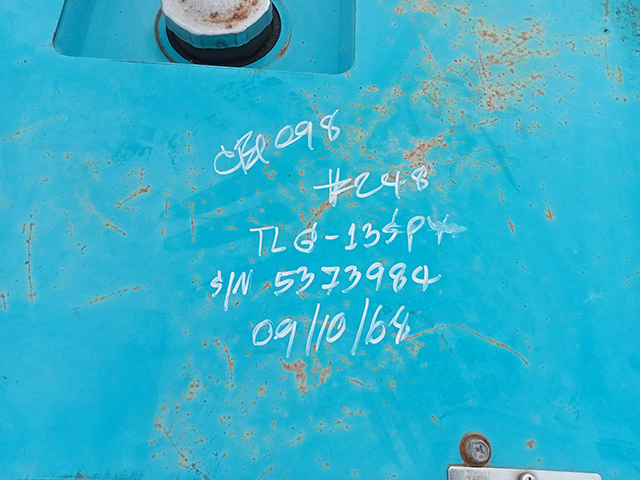 098
#248
TLG-13SPY
S/N 5373984
09/10/68